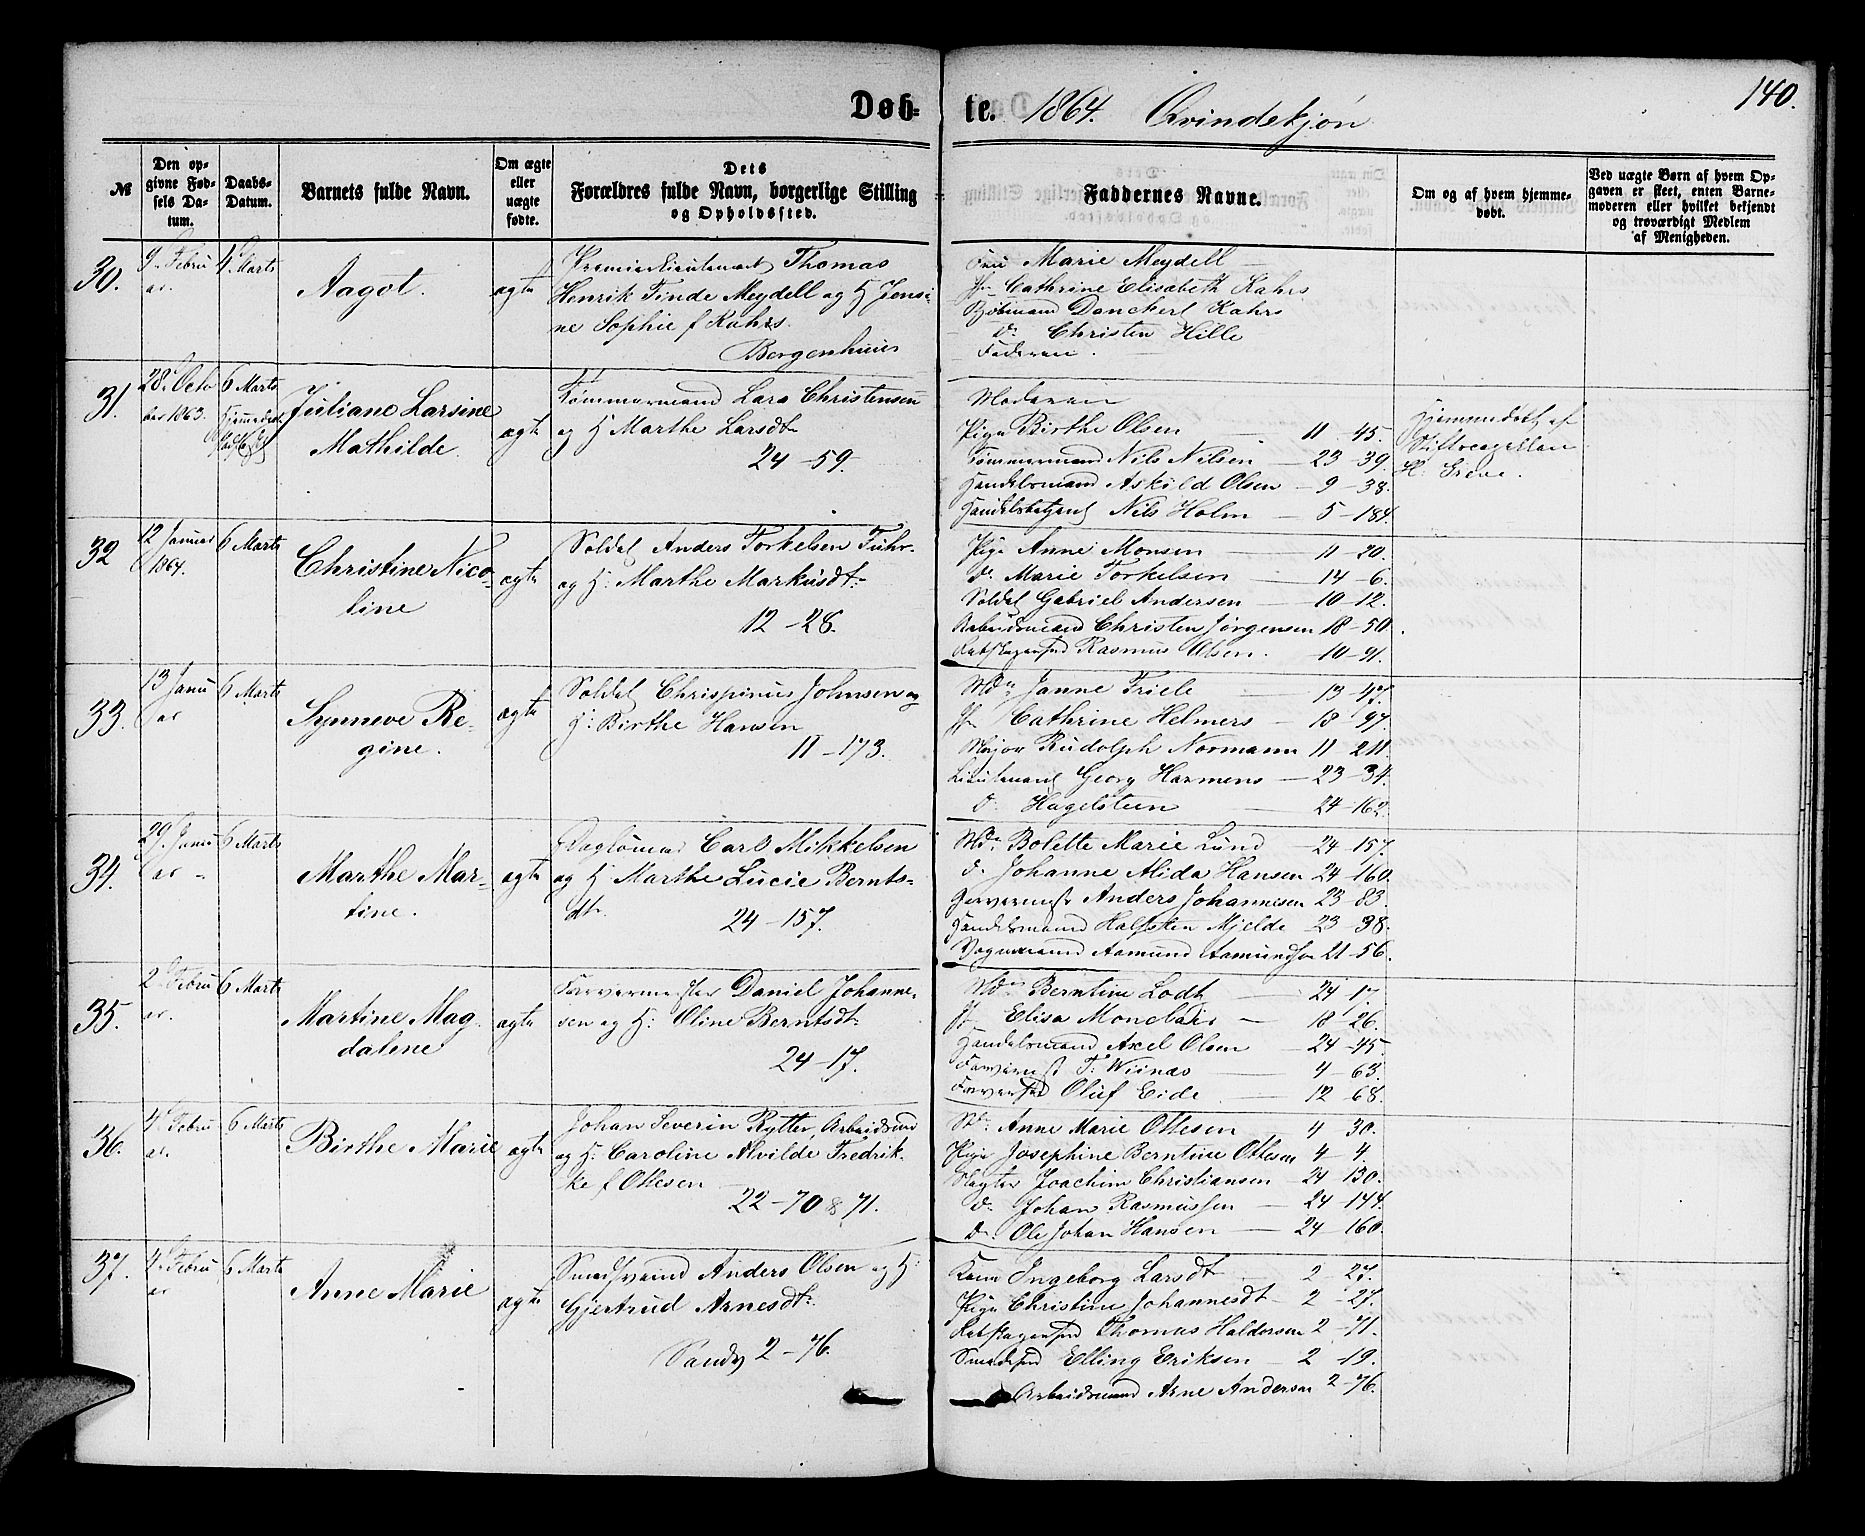 Døb-
te. 1864. Qvindekjøn
140.
№
Den op-
givne Fød-
sels Da-
tum.
Daabs-
Datum.
Barnets fulde Navn.
Om ægte
eller
uægte
fødte.
Dets
Forældres fulde Navn, borgerlige Stilling
og Opholdssted.
Faddernes Navne.
Om og af hvem hjemme-
døbt.
Ved uægte Børn af hvem Op-
gaven er skeet, enten Barne-
moderen eller hvilket bekjendt
og troværdigt Medlem
af Menigheden.
30.
9. Febru
ar.
4. Marts
Aagot.
ægte
Premierlieutenant Thomas
Henrik Finde Meydell og H. Jensi-
ne Sophie f Kahrs.
Bergenhuus
Fru Marie Meydell
Jfr Cathrine Elisabeth Kahrs
Kjøbmand Danckert Kahrs
do Christen Hille
Faderen.
31.
28. Octo
ber 1863.
6 Marts
Hjemmedøbt
Juliane Larsine
Mathilde.
ægte
Tømmermand Lars Christensen
og H Marthe Larsdtr
24 - 59.
Moderen
Pige Birthe Olsen 11 - 45.
Tømmermand Nils Nilsen - 23 - 39.
Handelsmand Askild Olsen - 9 - 38.
Handelsbetjent Nils Holm - 5 - 184.
Hjemmedøbt af
Stiftscapellan
H. Greve.
32
12 Januar
1864.
6 Marts
Christine Nico-
line
ægte
Soldat Anders Torkelsen Tuhr-
og H: Marthe Markusdtr
12 - 28.
Pige Anne Monsen 11 - 20.
do Marie Torkelsen 14 - 6.
Soldat Gabriel Andersen 10 - 12.
Arbeidsmand Christen Jørgensen 18 - 50.
Rasmus Olsen. 10 - 91.
33.
13 Janu
ar
6 Marts
Synneve Re-
gine.
ægte
Soldat Chrispinus Johnsen og
H: Birthe Hansen
11 - 173.
Md. Janne Friele 13 - 47.
Jfr Cathrine Helmers - 18 - 97.
Major Rudolph Normann 11 - 211.
Lieutenant Georg Harmens - 23 - 34.
do Hagelsteen 24 - 162.
34.
29. Janu
ar
6 Marts
Marthe Mar-
tine.
ægte
Daglønner Carl Mikkelsen
og H Marthe Lucie Bernts-
dtr. 24 - 157.
Md. Bolette Marie Lund - 24 - 157.
do Johanne Alida Hansen 24 - 160.
Farvermstr Anders Johannesen 23 - 83.
Handelsmand Halfsten Mjelde 23 - 38.
Vognmand Aamund Aamundsen 21 - 56.
35.
2 Febru
ar.
6 Marts
Martine Mag-
dalene
ægte
Farvermester Daniel Johanne-
sen og H: Oline Berntsdtr
24 - 17.
Md. Berntine Lodt 24 - 17.
Jfr Elisa Monclair - 18 - 26.
Handelsmand Axel Olsen - 24 - 45.
Farvermstr T: Wiinæs 4 - 63.
Farversvd Oluf Eide 12 - 68.
36.
4. Febru
ar.
6 Marts
Birthe Marie
ægte
Johan Severin Rytter, Arbeidsmd
og H: Caroline Alvilde Fredrik-
ke f Ottesen
22 - 70 & 71.
Md. Anne Marie Ottesen 4 - 30.
Pige Josephine Berntine Ottesen 4 - 4.
Slagter Joachim Christiansen 24 - 130.
do Johan Rasmussen 24 - 144.
do Ole Johan Hansen 24 - 160.
37.
4. Febru
ar
6 Marts
Anne Marie
ægte
Smedsvend Anders Olsen og H:
Gjertrud Arnesdtr.
Sandv 2 - 76.
Kone Ingeborg Larsdt 2 - 27.
Pige Christine Johannesdt - 2 - 27.
Thomas Haldorsen 2 - 71.
Smedsvd Elling Eriksen - 2 - 19.
Arbeidsmand Arne Andersen 2 - 76.